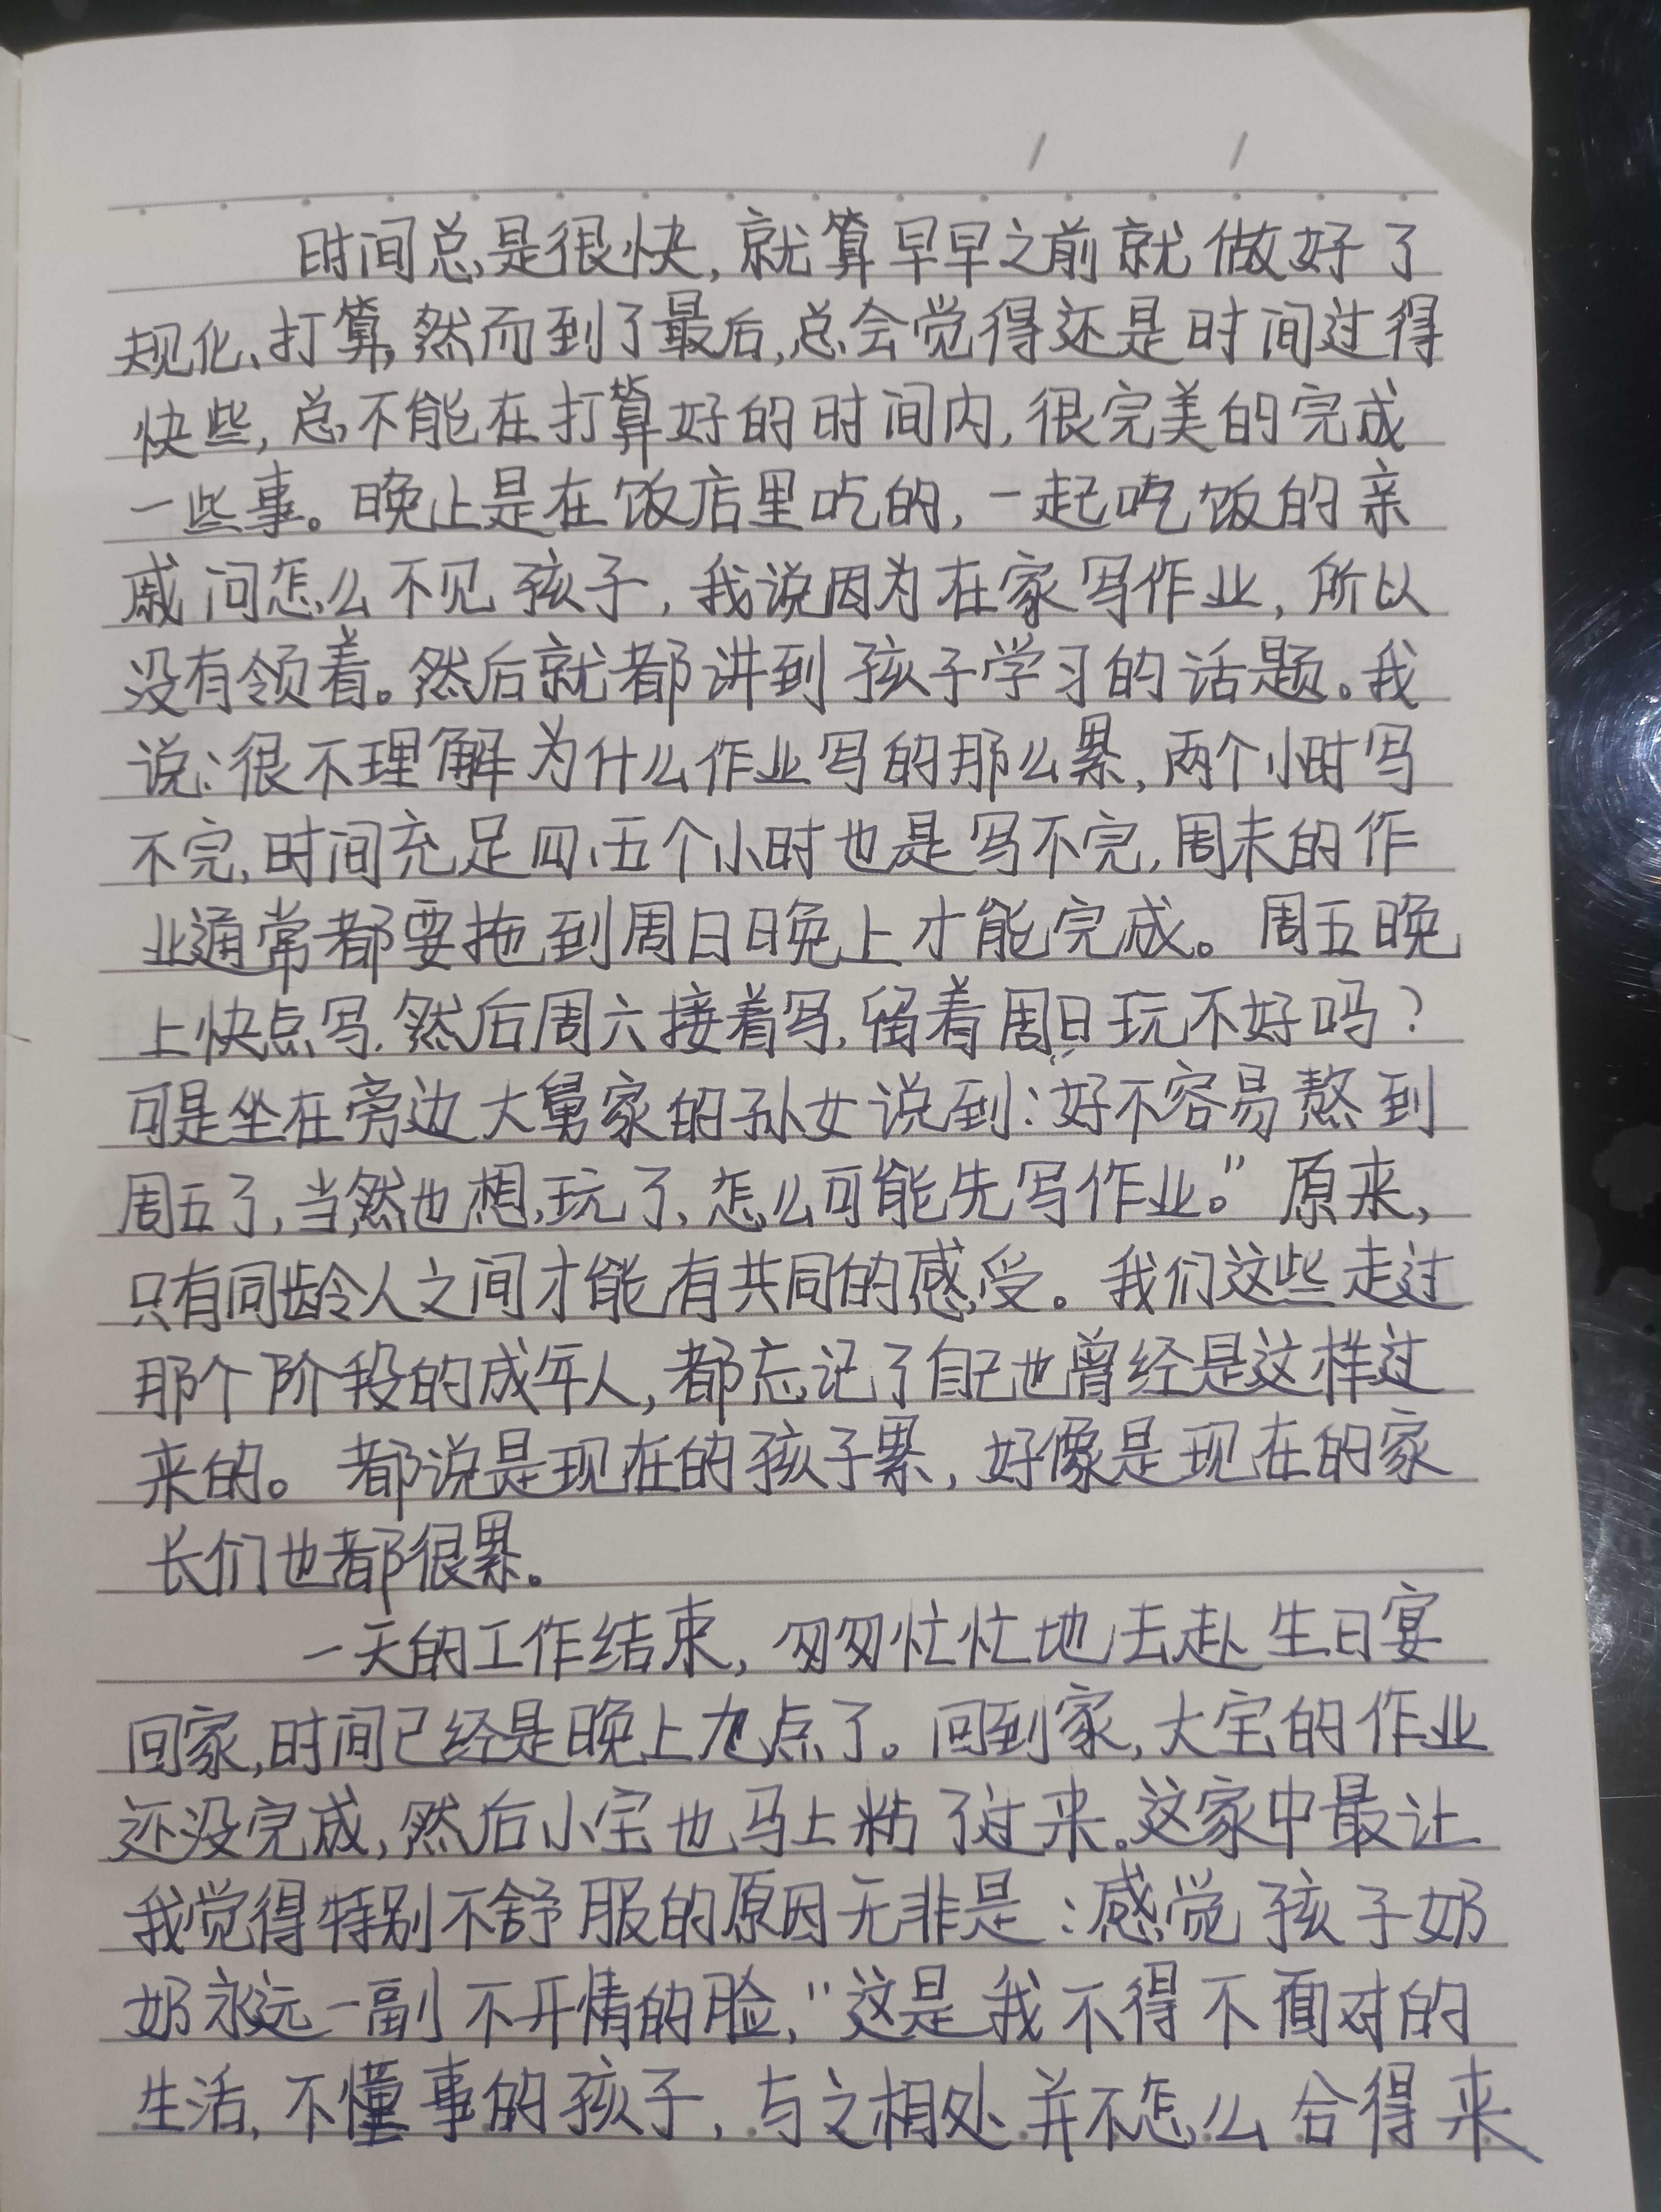 时间总是很快,就算早早之前就做好了
规化、打算,然而到了最后,总会觉得还是时间过得
快些,总不能在打算好的时间内,很完美的完成
一些事。晚上是在饭店里吃的,一起吃饭的亲
戚问怎么不见孩子,我说因为在家写作业,所以
没有领着。然后就都讲到孩子学习的话题。我
说:很不理解为什么作业写的那么累,两个小时写
不完,时间充足四、五个小时也是写不完,周末的作
业通常都要拖到周日晚上才能完成。周五晚
上快点写,然后周六接着写,留着周日玩不好吗?
可是坐在旁边大舅家的孙女说到:“好不容易熬到
周五了,当然也想玩了,怎么可能先写作业。”原来,
只有同龄人之间才能有共同的感受。我们这些走过
那个阶段的成年人,都忘记了自己也曾经是这样过
来的。都说是现在的孩子累,好像是现在的家
长们也都很累。
一天的工作结束,匆匆忙忙地去赴生日宴
回家,时间已经是晚上九点了。回到家,大宝的作业
还没完成,然后小宝也马上粘了过来。这家中最让
我觉得特别不舒服的原因无非是:感觉孩子奶
奶永远一副不开情的脸,“这是我不得不面对的
生活,不懂事的孩子,与之相处并不怎么合得来